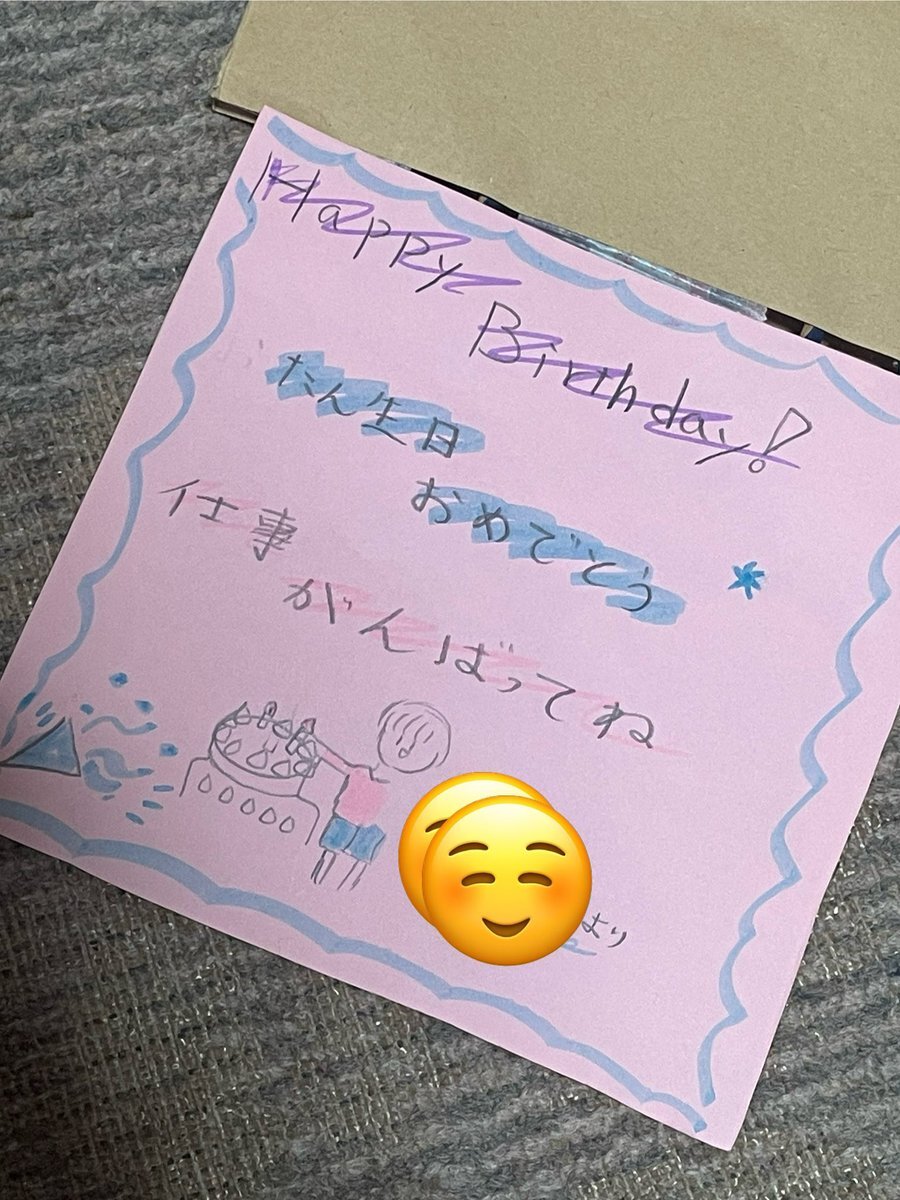 Happy
Birthday!
たん生日
おめでとう
仕事
がんばってね
より